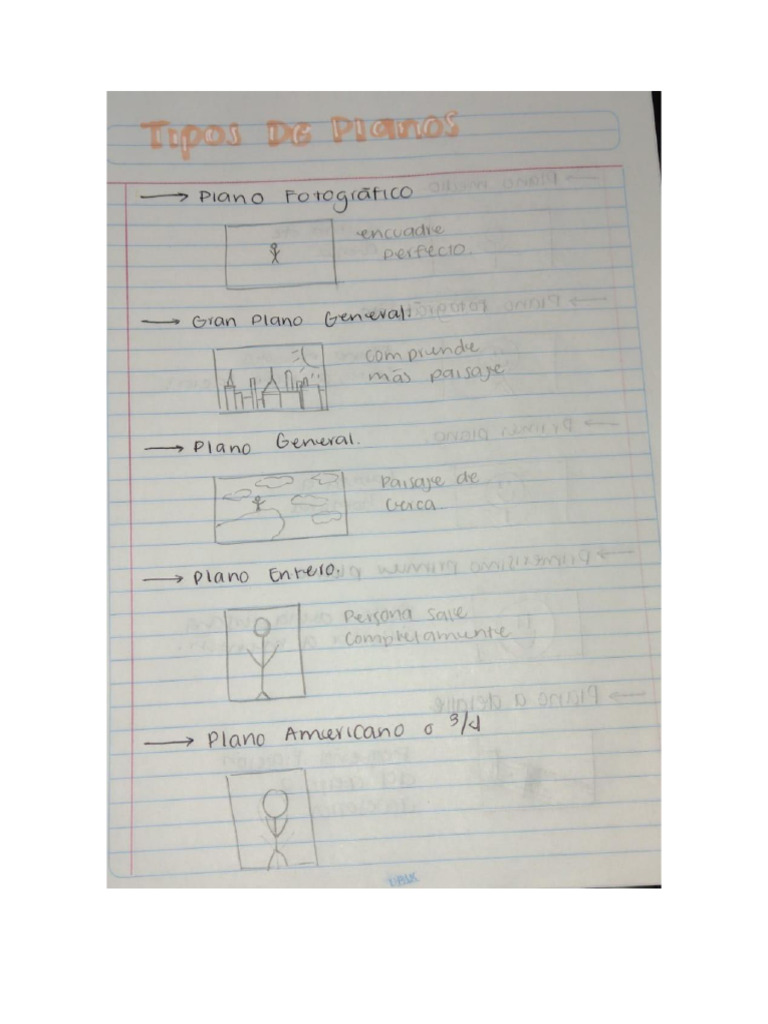 Tipos De Planos
→ Plano Fotográfico
encuadre
perfecto.
→ Gran Plano General:
comprende
más paisaje
→ Plano General.
Paisaje de
cerca.
→ Plano Entero.
Persona sale
completamente
→ Plano Americano o 3/4